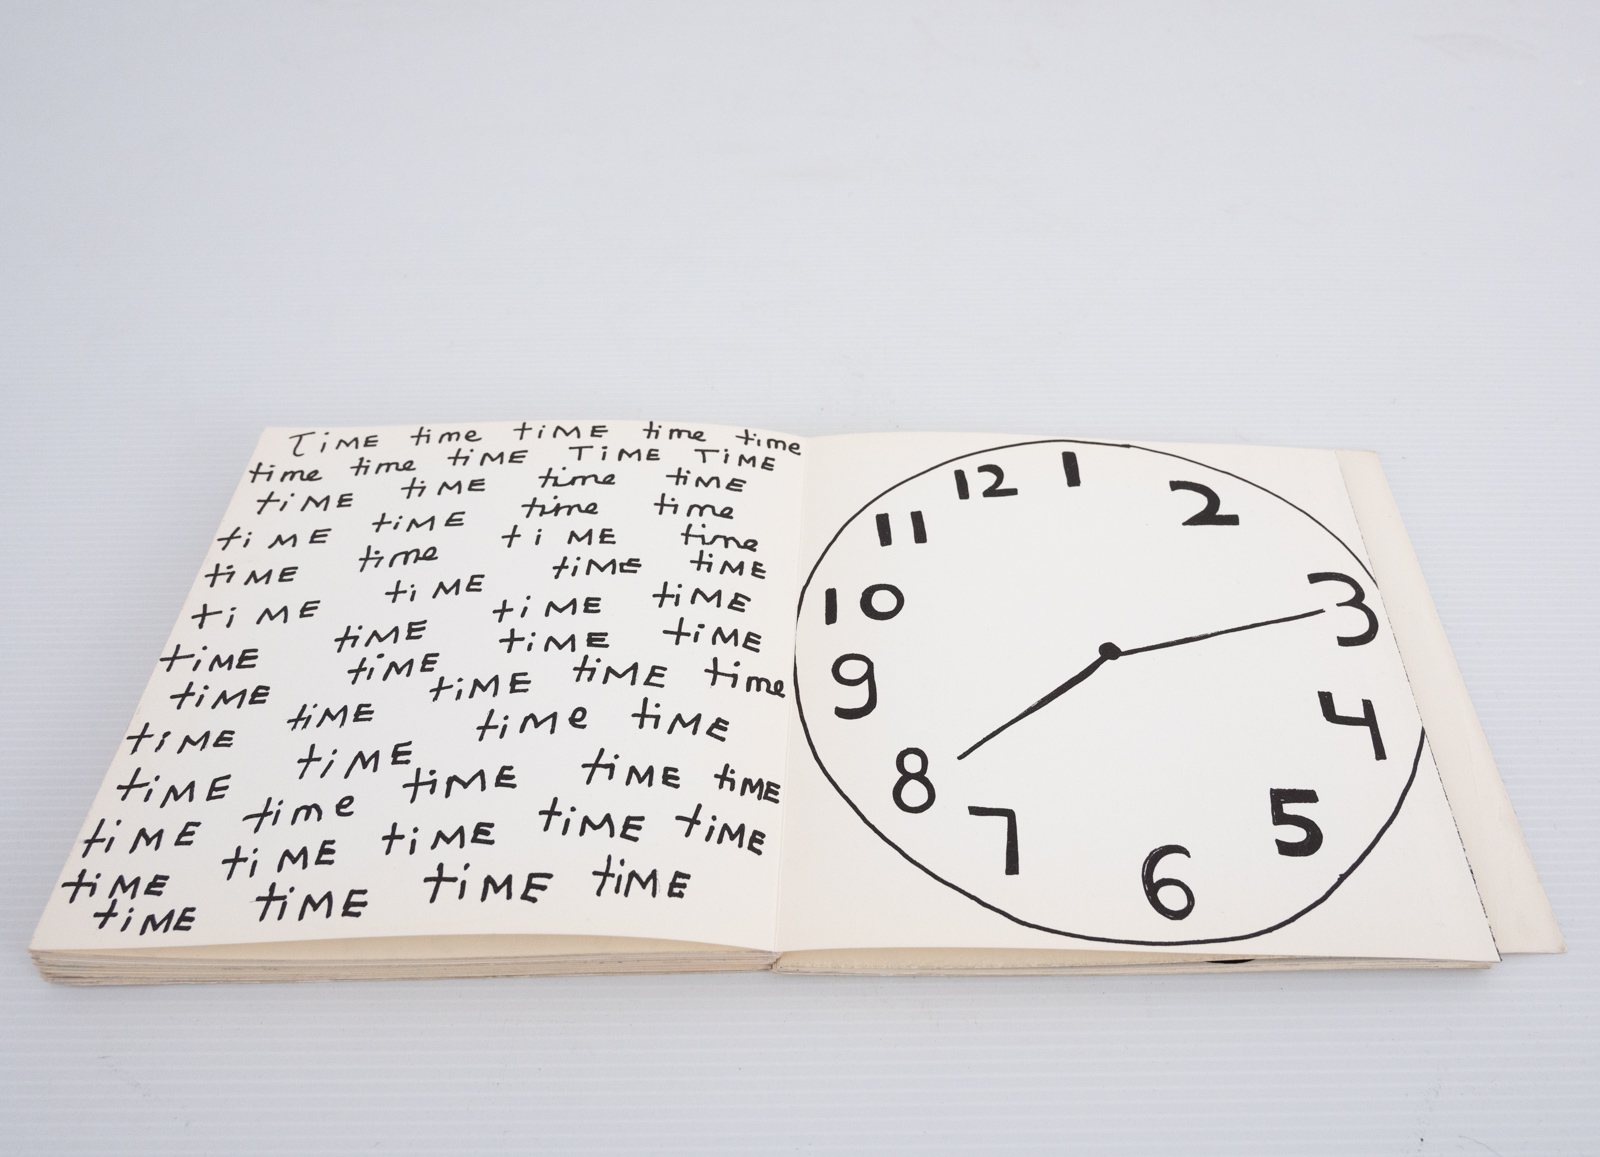 TiME time tiME time time
time time tiME TiME TiME
tiME tiME time tiME
tiME time time
tiME tiME tiME time
tiME time tiME tiME
tiME tiME tiME tiME
tiME tiME tiME
tiME tiME tiME time
tiME tiME
tiME time tiME
tiME tiME
tiME tiME tiME tiME
tiME time tiME tiME
tiME tiME
tiME
tiME tiME tiME
tiME tiME
12 1 2
11
10 3
9 4
8
7 5
6